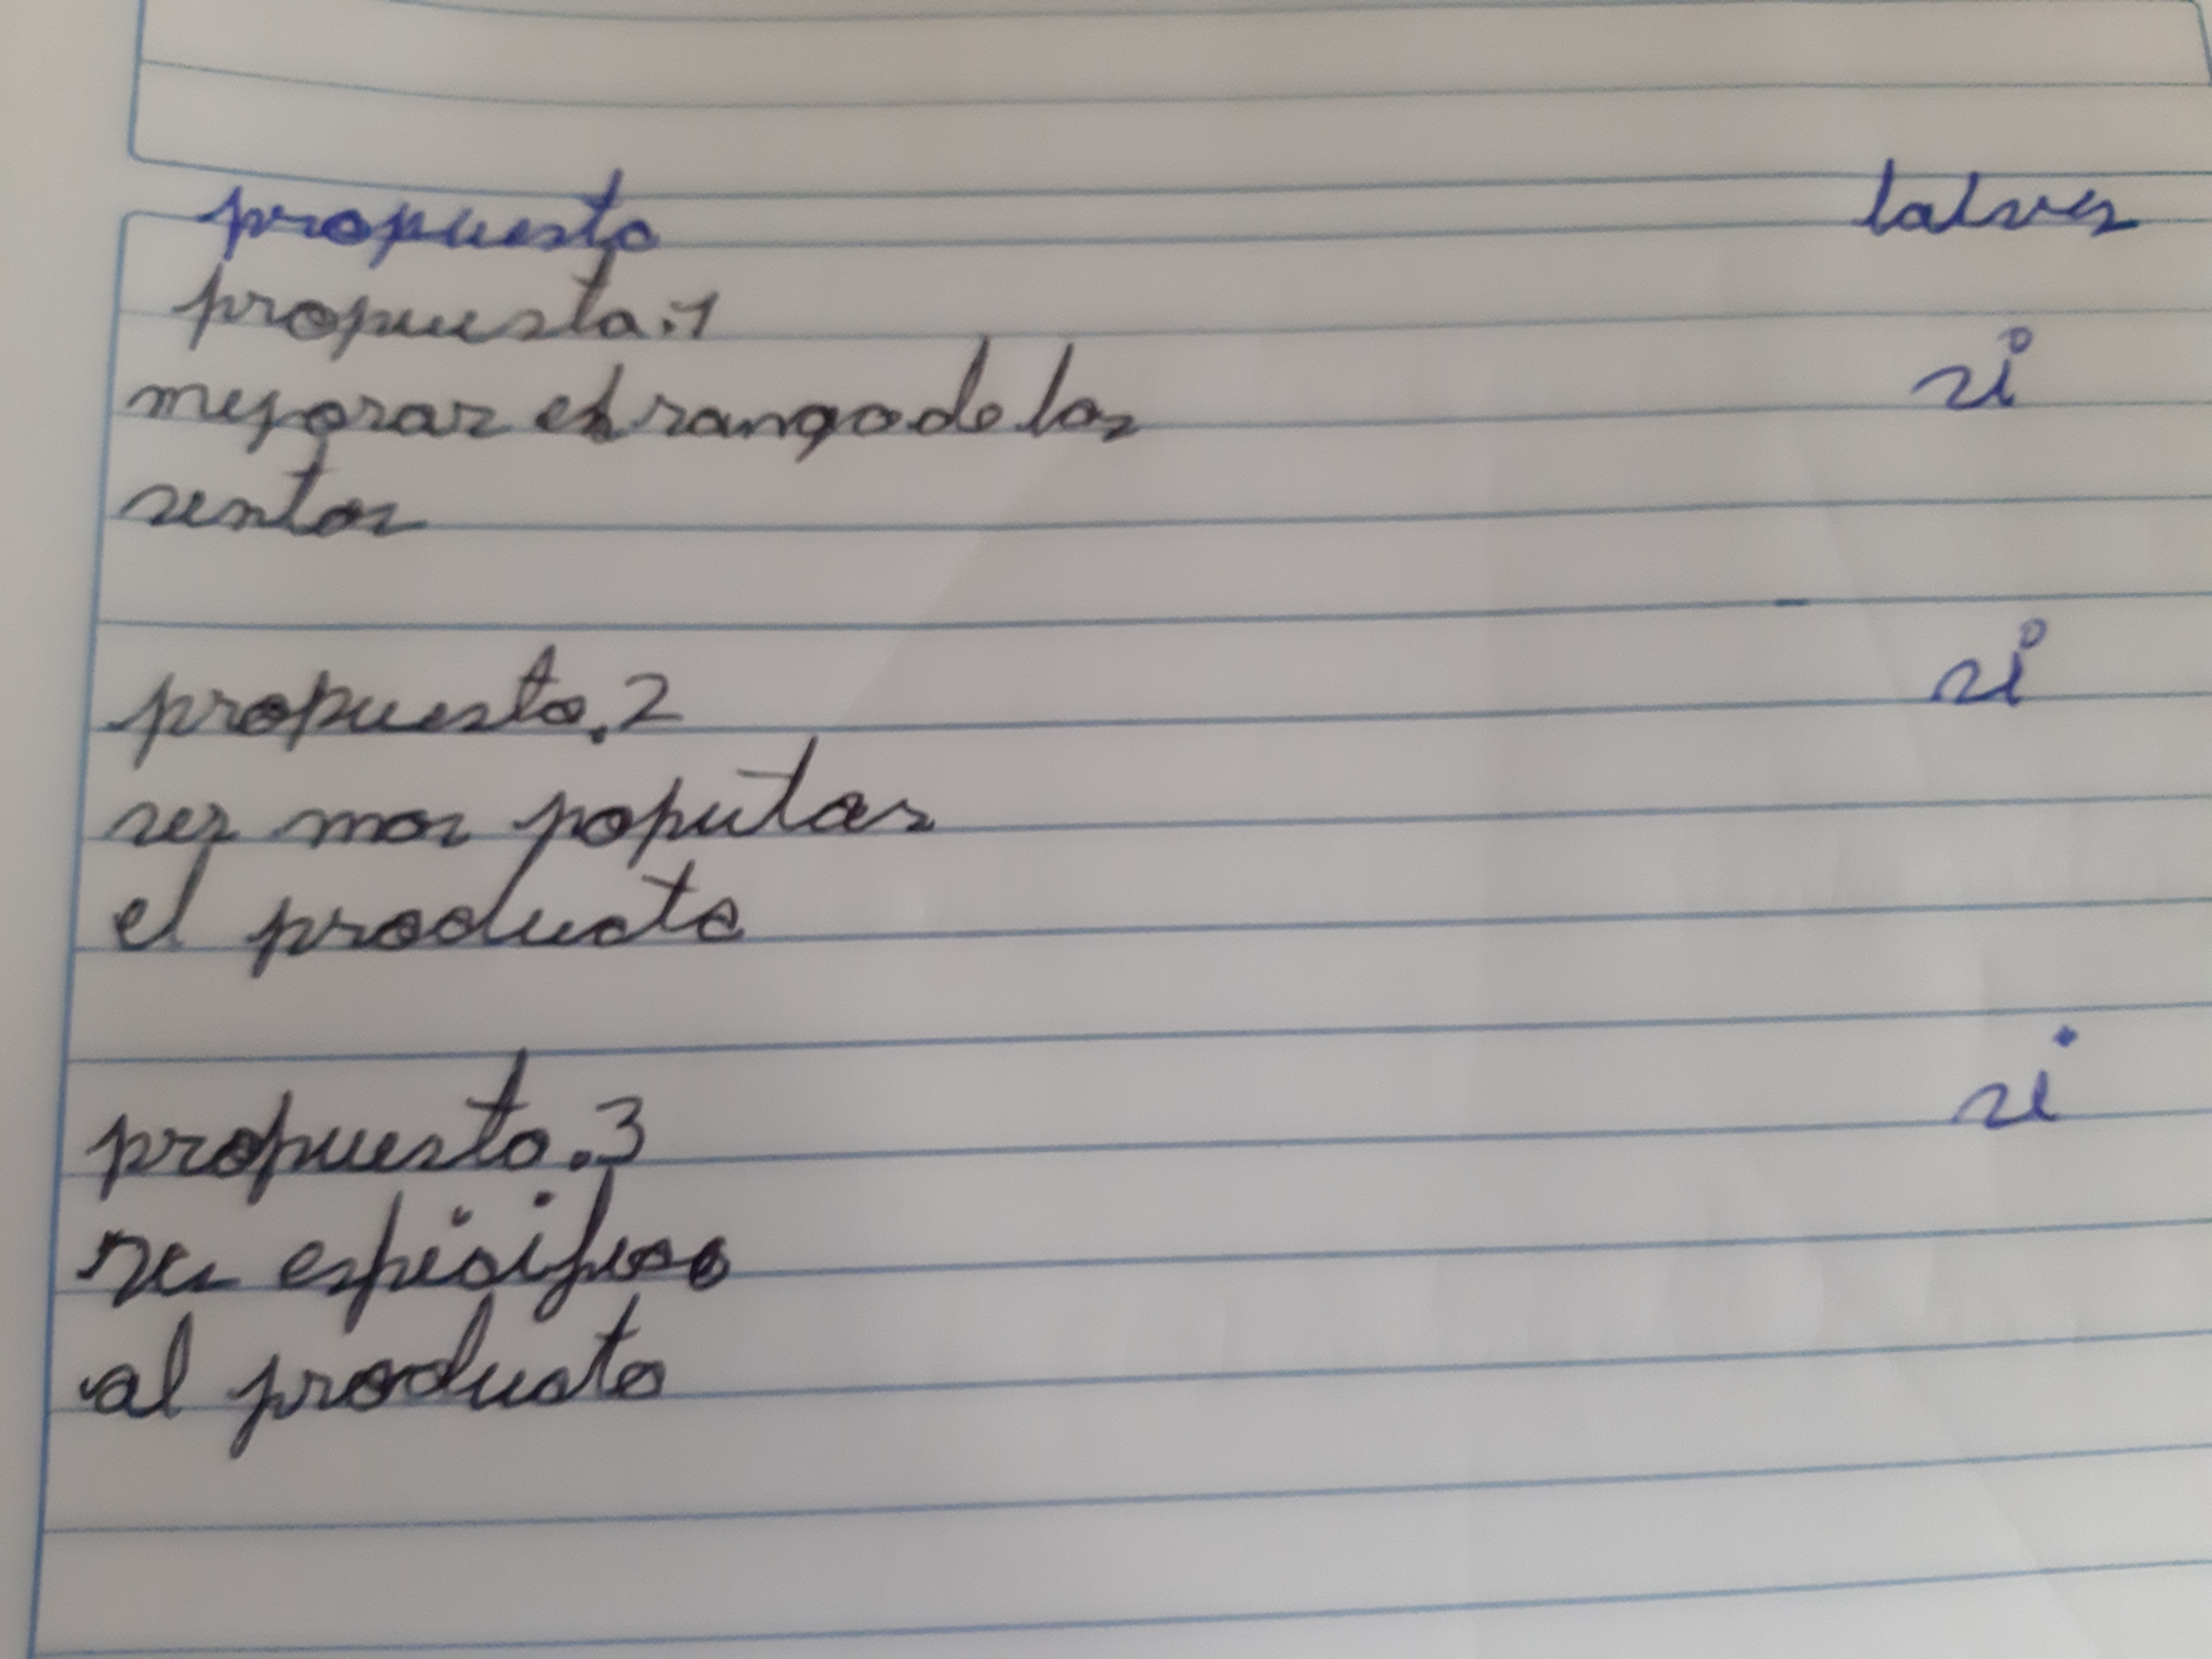 propuesta talves
propuesta.1
mejorar el rango de los si
sentos
propuesta.2 si
ser mas populas
el producto
propuesta.3 si
ser espicifico
al producto